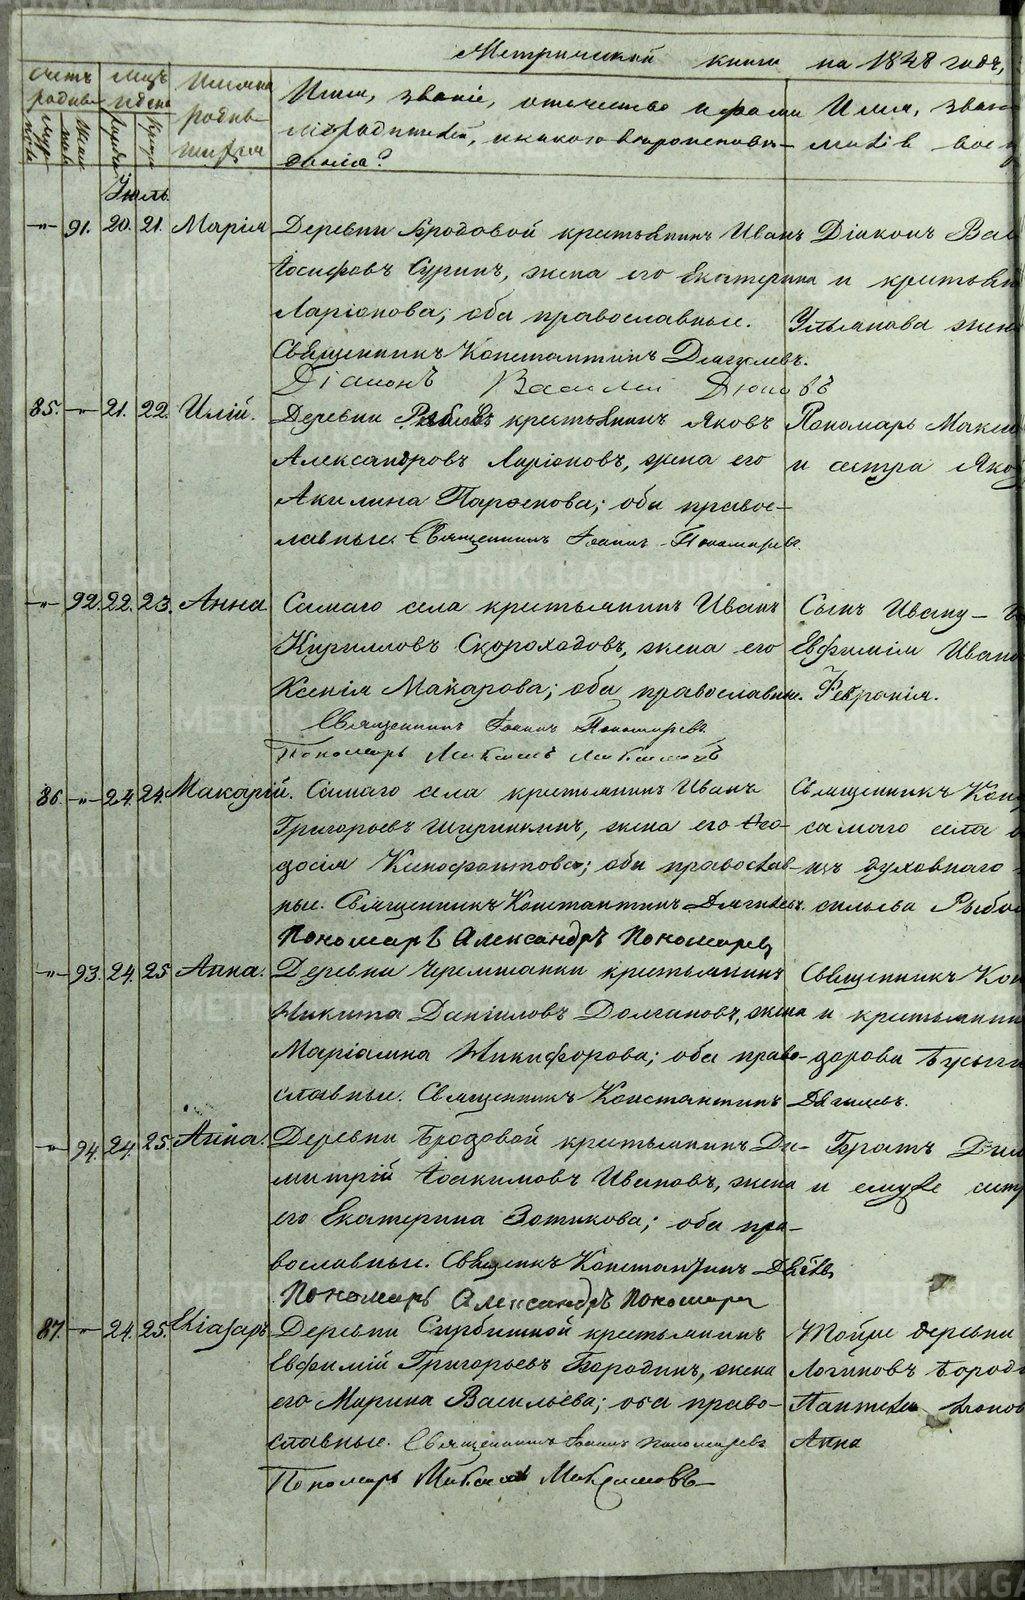 Метрической книги на 1848 годъ,
Счетъ родив
Мѣсяцъ и день
Имена родив-
шихся
муж
жен
Имя, званіе, отечество и фами
лія родителей, и какого вѣроисповѣ-
данія?
Имя, зван
Іюль.
-"- 91. 20. 21. Марія
Деревни Бродовой крестьянинъ Иванъ
Іосифовъ Суринъ, жена его Екатерина
Ларіонова; оба православные.
Священникъ Константинъ Дягилевъ.
Діаконъ Василій
Діаконъ Вас
и крестьян
Ульянова жен
85. -"- 21. 22. Илій.
Деревни крестьянинъ Яковъ
Александровъ Ларіоновъ, жена его
Акилина Парѳенова; оба право-
славные. Священникъ Іоаннъ Пономаревъ.
Пономарь Макси
и сестра Яко
-"- 92. 22. 23. Анна
Самаго села крестьянинъ Иванъ
Кирилловъ Скороходовъ, жена его
Ксенія Макарова; оба православные.
Священникъ Іоаннъ Пономаревъ.
Пономарь Максимъ
Сынъ Ивану
Евфимія Ивано
Февронія.
86. -"- 24. 24. Макарій.
Самаго села крестьянинъ Иванъ
Григорьевъ Ширинкинъ, жена его Ѳео-
досія Ксенофонтова; оба православ-
ные. Священникъ Константинъ Дягилевъ.
Пономарь Александръ Пономаревъ
Священникъ Кон
самаго села
духовнаго
сильева Рыбо
-"- 93. 24. 25 Анна.
Деревни Черемшанки крестьянинъ
Никита Даніиловъ Долгановъ, жена
Маріамна Никифорова; оба право-
славные. Священникъ Константинъ Дягилевъ.
Священникъ Кон
и крестьянин
дорова
-"- 94. 24. 25. Анна.
Деревни Бродовой крестьянинъ Ди-
митрій Іоакимовъ Ивановъ, жена
его Екатерина Зотикова; оба пра-
вославные. Священникъ Константинъ
Пономарь Александръ Пономарев
Братъ Дим
и ему же сест
87. -"- 24. 25. Елиазаръ
Деревни Сырбишной крестьянинъ
Евфимій Григорьевъ Бородинъ, жена
его Марина Васильева; оба право-
славные. Священникъ Іоаннъ Пономаревъ
Пономарь Максимъ Максимовъ
Той же деревни
Логиновъ Бород
Пантеле
Анна
METRIKI.GASO-URAL.RU